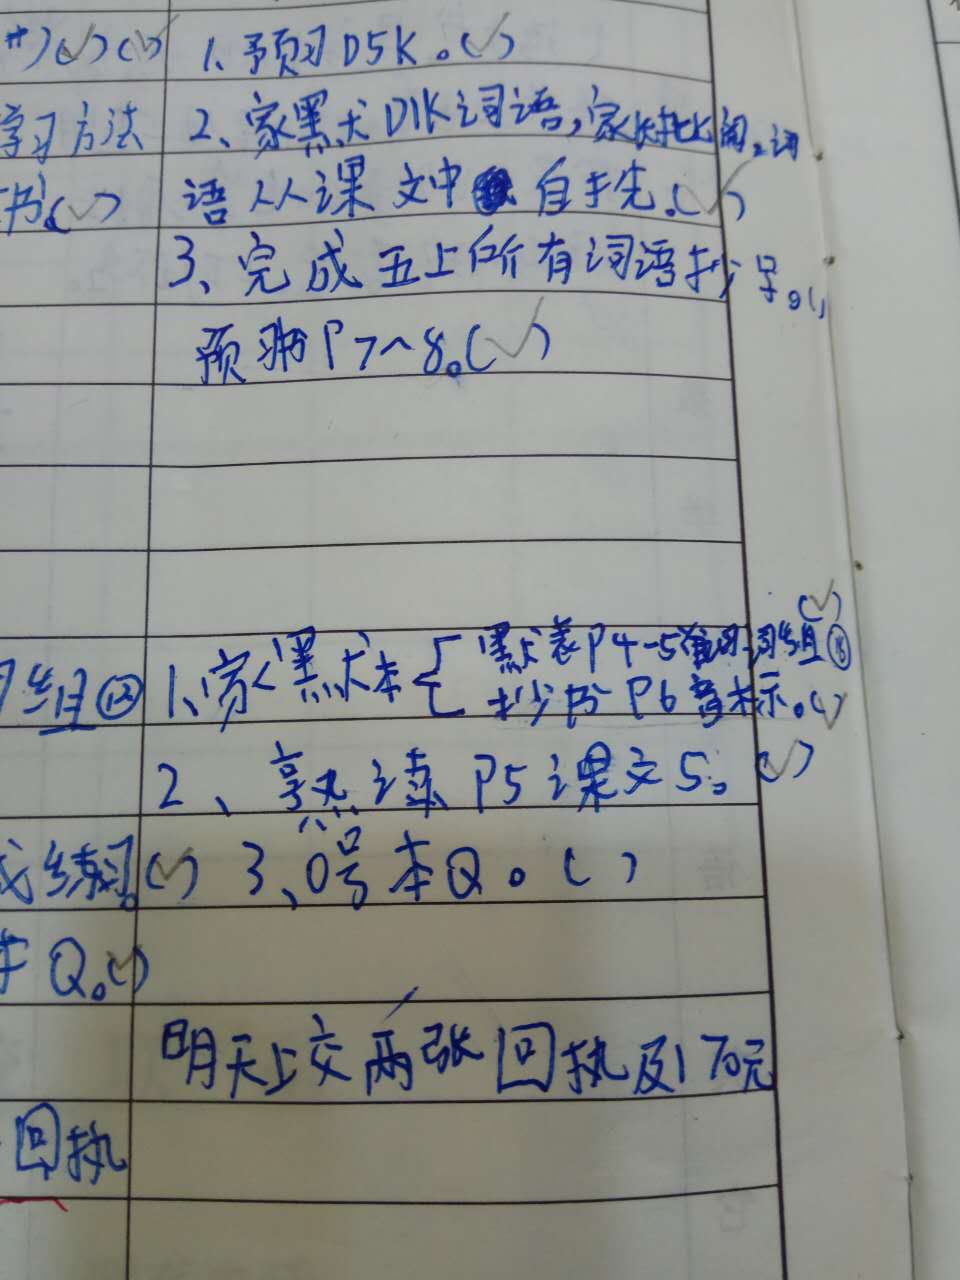 #)(✓)(✓)
1、预习D5K。(✓)
学习方法
2、家黑犬D1K词语,家长批阅。词
书(✓)
语从课文中自扌先。(✓)
3、完成五上所有词语抄写。()
预习书P7~8。(✓)
(✓)
组⑫
1、家黑犬本{黑犬表P4-5 词组⑬
抄书P6音标。(✓)
2、熟读P5课文5。(✓)
成练习。(✓)
3、0号本Q。( )
本Q。(✓)
明天上交两张回执及170元
回执